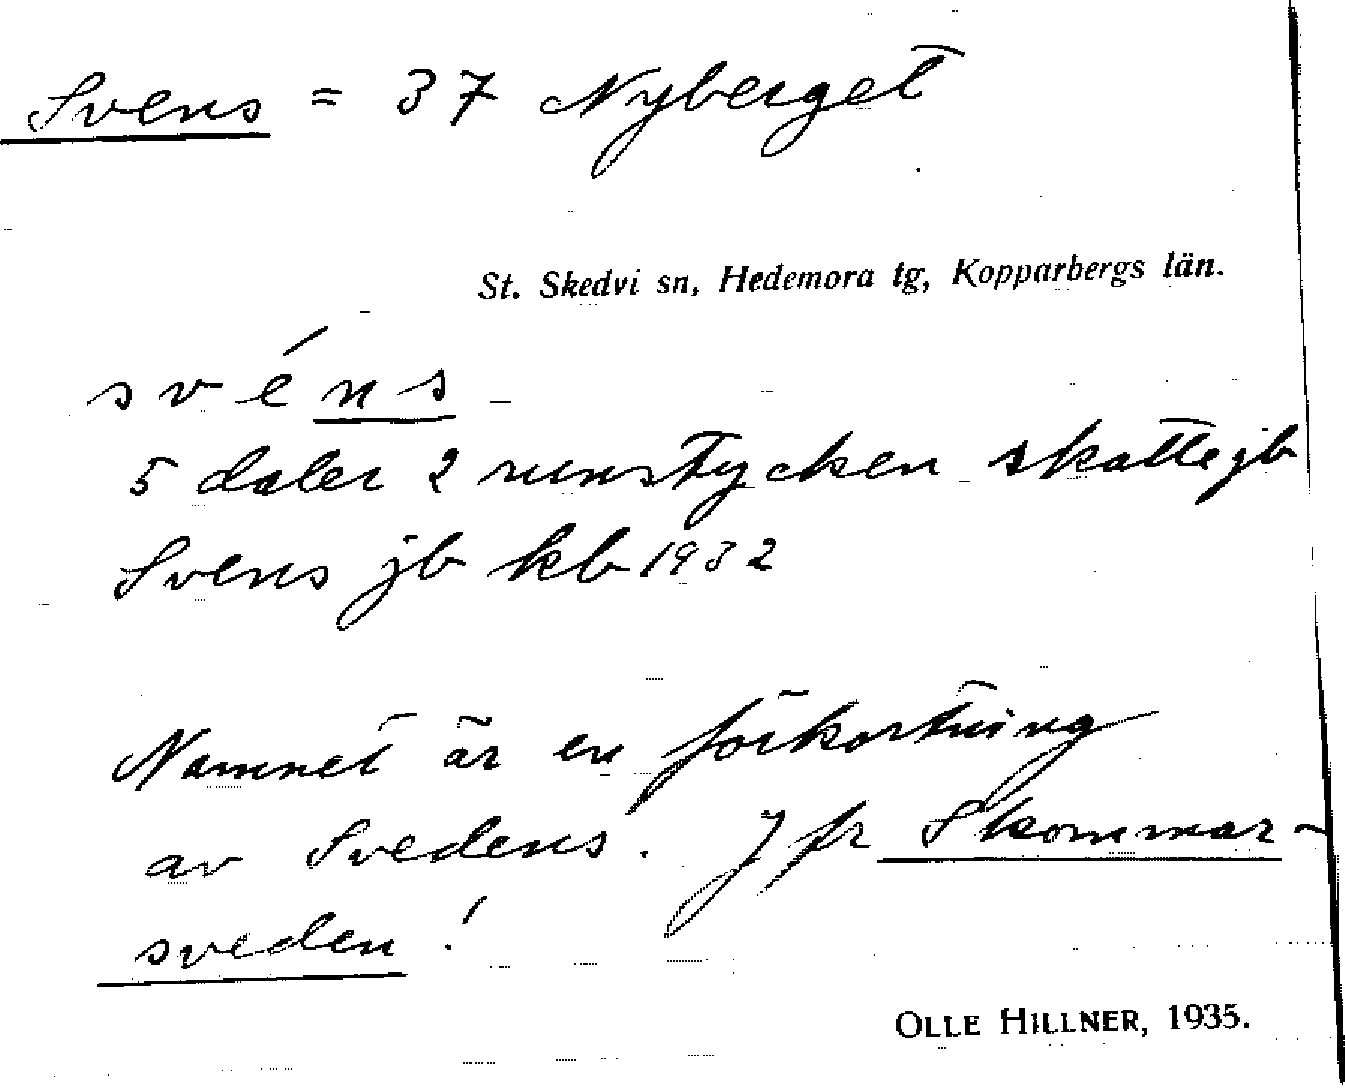 Svens = 37 Nyberget
St. Skedvi sn, Hedemora tg, Kopparbergs län.
svéns
5 daler 2 runstycken skatte jb
Svens jb kb 1932
Namnet är en förkortning
av Svedens. Jfr Skommar-
sveden!
OLLE HILLNER, 1935.